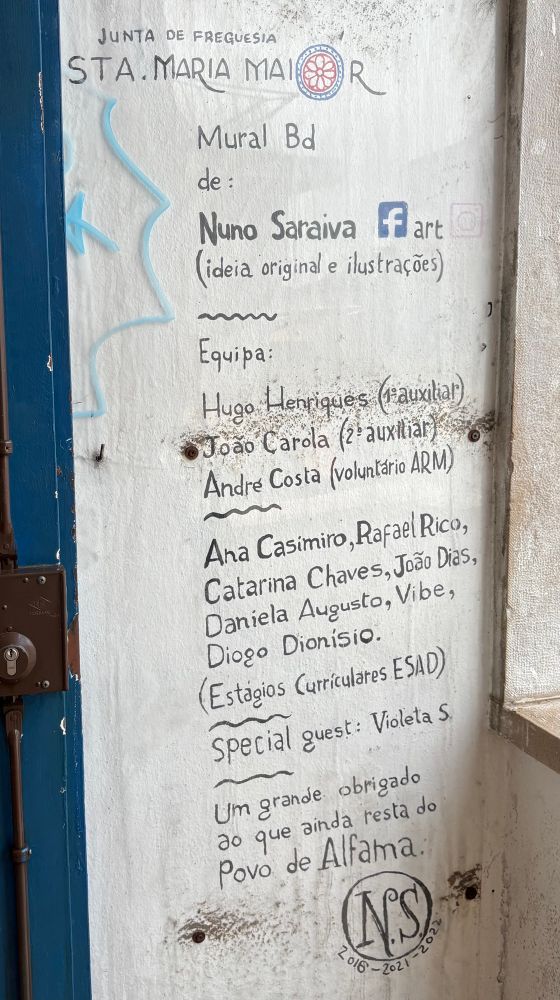 JUNTA DE FREGUESIA
STA. MARIA MAIOR
Mural Bd
de:
Nuno Saraiva f art
(ideia original e ilustrações)
Equipa:
Hugo Henriques (1º auxiliar)
João Carola (2º auxiliar)
André Costa (voluntário ARM)
Ana Casimiro, Rafael Rico,
Catarina Chaves, João Dias,
Daniela Augusto, Vibe,
Diogo Dionísio.
(Estágios Currículares ESAD)
Special guest: Violeta S
Um grande obrigado
ao que ainda resta do
Povo de Alfama.
N.S.
2016-2021-2022